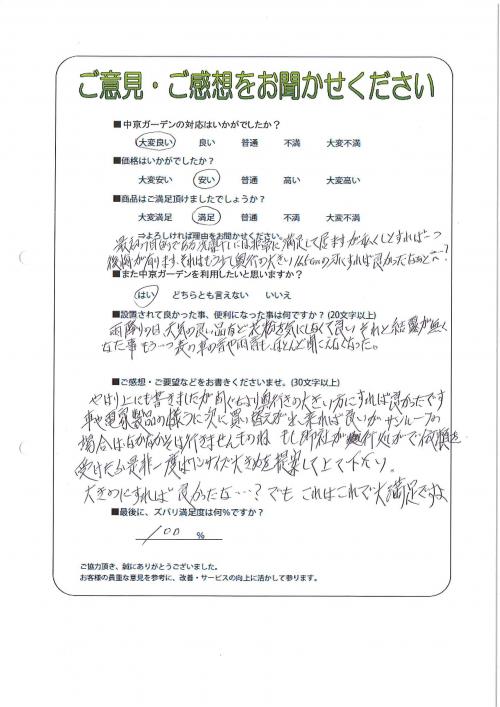 ご意見・ご感想をお聞かせください
■中京ガーデンの対応はいかがでしたか？
大変良い 良い 普通 不満 大変不満
■価格はいかがでしたか？
大変安い 安い 普通 高い 大変高い
■商品はご満足頂けましたでしょうか？
大変満足 満足 普通 不満 大変不満
⇒よろしければ理由をお聞かせください。
最初の目的である洗濯干しには非常に満足して居ますが
後悔が有ります、それはもう少し奥行の大きい にすれば良かったなあと…？
■また中京ガーデンを利用したいと思いますか？
はい どちらとも言えない いいえ
■設置されて良かった事、便利になった事は何ですか？(20文字以上)
雨降りの日、天気の 気にしなくて良い それと結露が無く
なった事 もう一つ表の車の音や雨音も、ほとんど聞こえなくなった。
■ご感想・ご要望などをお書きくださいませ。(30文字以上)
やはり上にも書きましたが 奥行きの大きい方にすれば良かったです
車や電家製品の様うに次に買い替えが出来れば良いが サンルーフの
場合はなかなかそうは行きませんものね もし
受けたら是非一度はワンサイズ大きめを提案して上て下さい。
大きめにすれば良かったな…？でも これはこれで大満足ですよ
■最後に、ズバリ満足度は何％ですか？
100 %
ご協力頂き、誠にありがとうございました。
お客様の貴重な意見を参考に、改善・サービスの向上に活かして参ります。